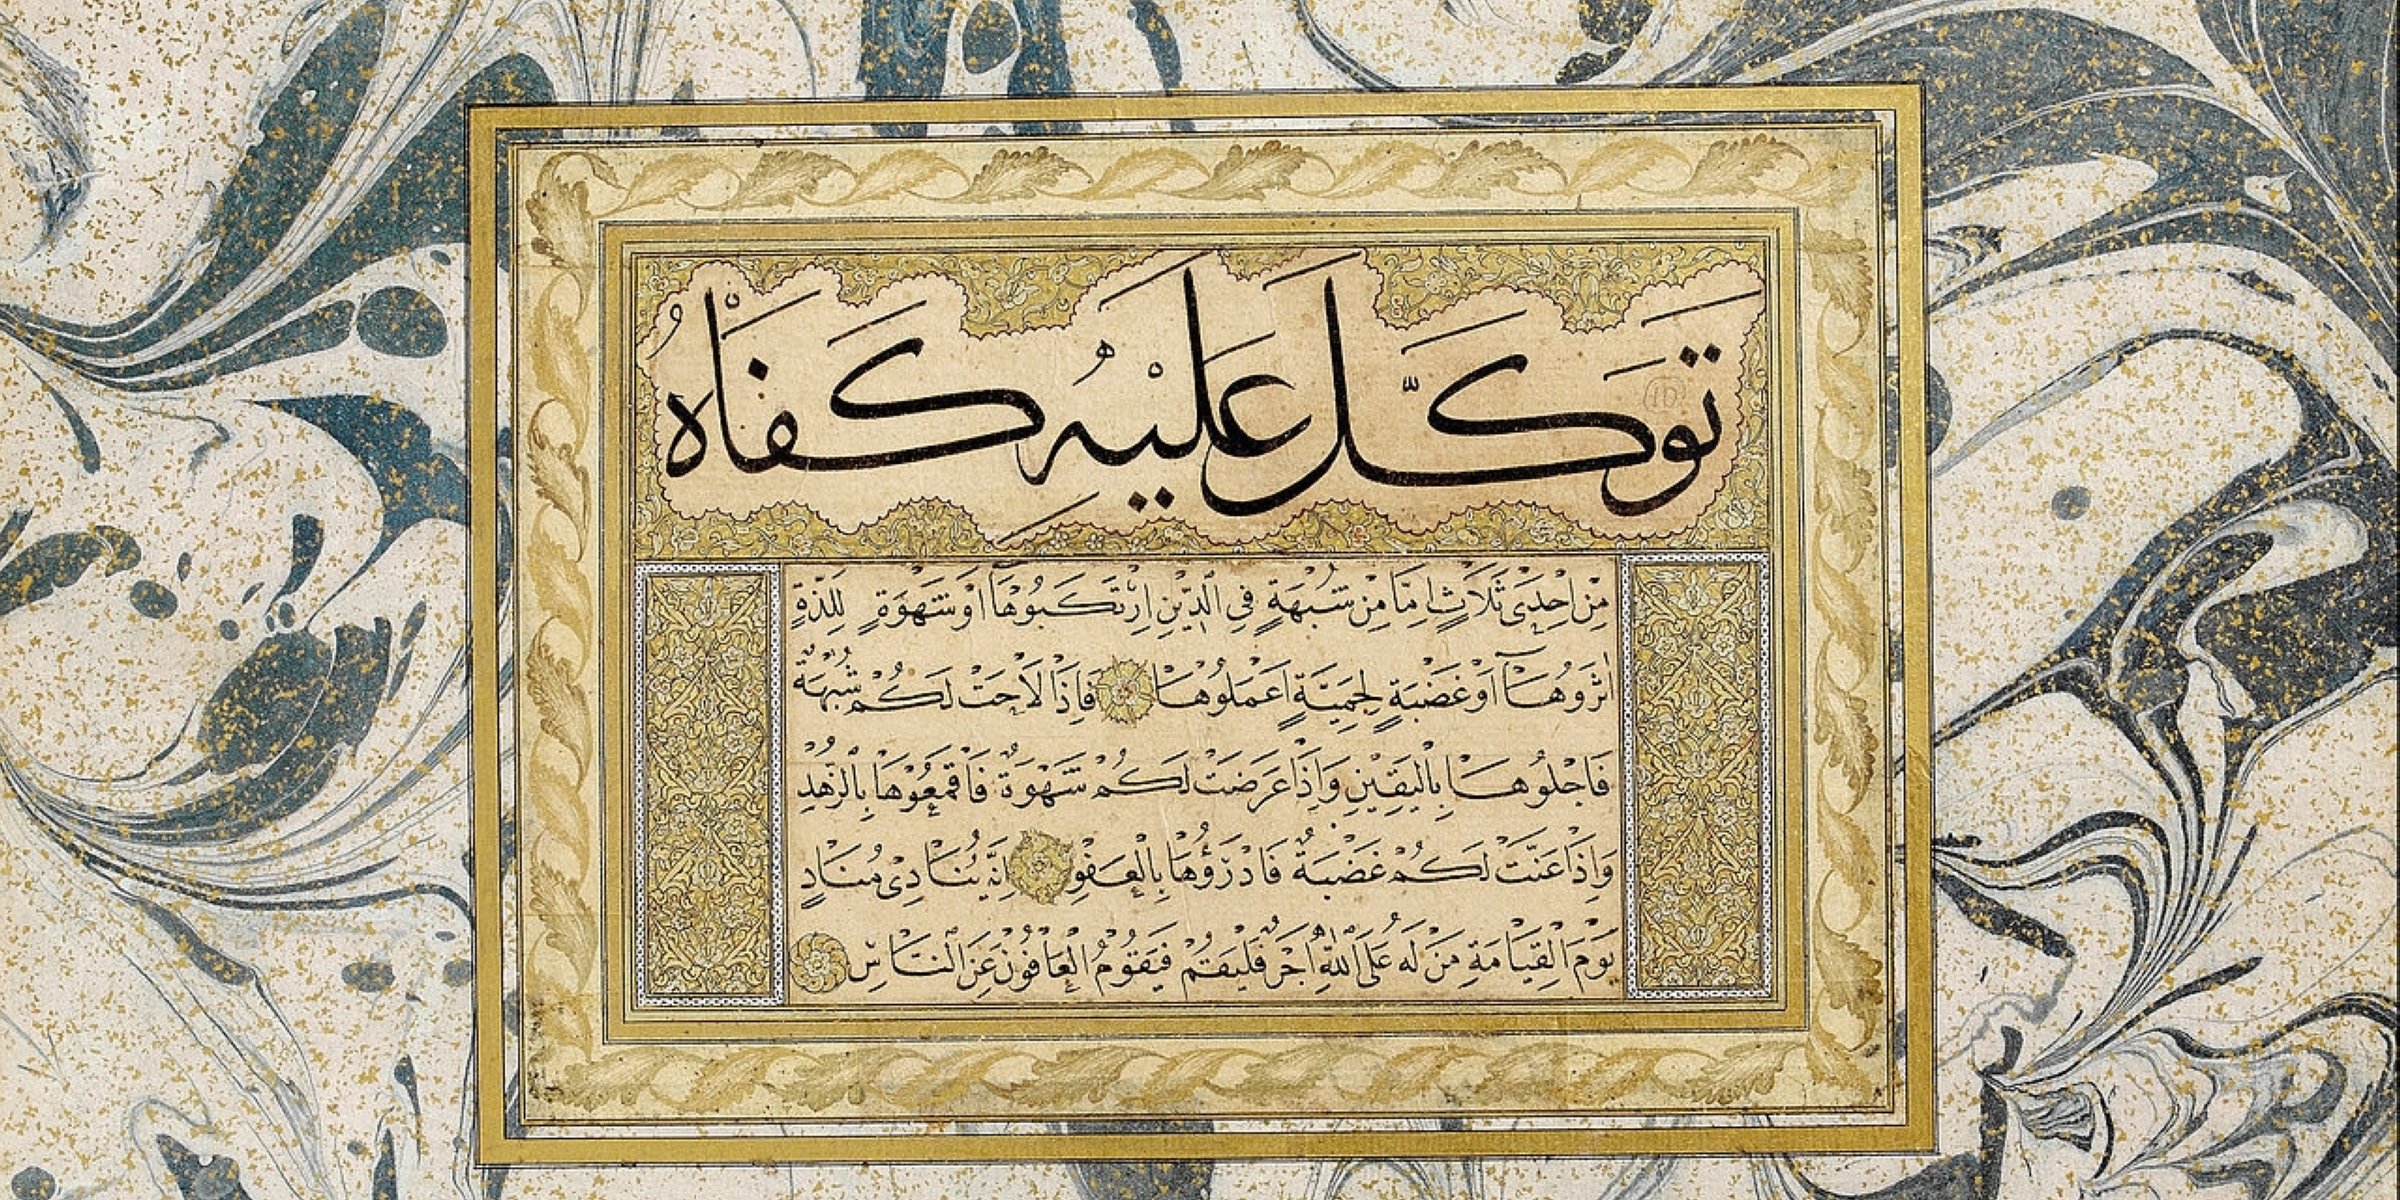 تَوَكَّلَ عَلَيْهِ كَفَاهُ
مِنْ اِحْدٰى ثَلَاثٍ اِمَّا مِنْ شُبْهَةٍ فِي الدِّيْنِ اِرْتَكَبُوْهَا اَوْ شَهْوَةٍ لِلَذَّةٍ
اٰثَرُوْهَا اَوْ غَضْبَةٍ لِحَمِيَّةٍ اَعْمَلُوْهَا فَاِذَا لَاحَتْ لَكُمْ شُبْهَةٌ
فَاجْلُوْهَا بِالْيَقِيْنِ وَاِذَا عَرَضَتْ لَكُمْ شَهْوَةٌ فَاقْمَعُوْهَا بِالزُّهْدِ
وَاِذَا عَنَّتْ لَكُمْ غَضْبَةٌ فَادْرَؤُهَا بِالْعَفْوِ اِنَّهُ يُنَادِيْ مُنَادٍ
يَوْمَ الْقِيَامَةِ مَنْ لَهُ عَلَى اللّٰهِ اَجْرٌ فَلْيَقُمْ فَيَقُوْمُ الْعَافُوْنَ عَنِ النَّاسِ